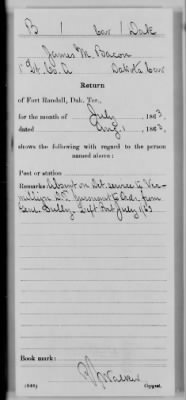 B | 1 | Cav | Dak
James M. Bacon
1" Lt. Co. A Dakota Cav
Return
of Fort Randall, Dak. Ter.,
for the month of July, 1863.
dated Aug. 1, 1863.
shows the following with regard to the person
named above:
Post or station
Remarks: Absent on Det. service to Ver-
million D.T. pursuant to Ords. from
Genl. Sully. Left Post July 1/63
Book mark:
Walker
(546) Copyist.